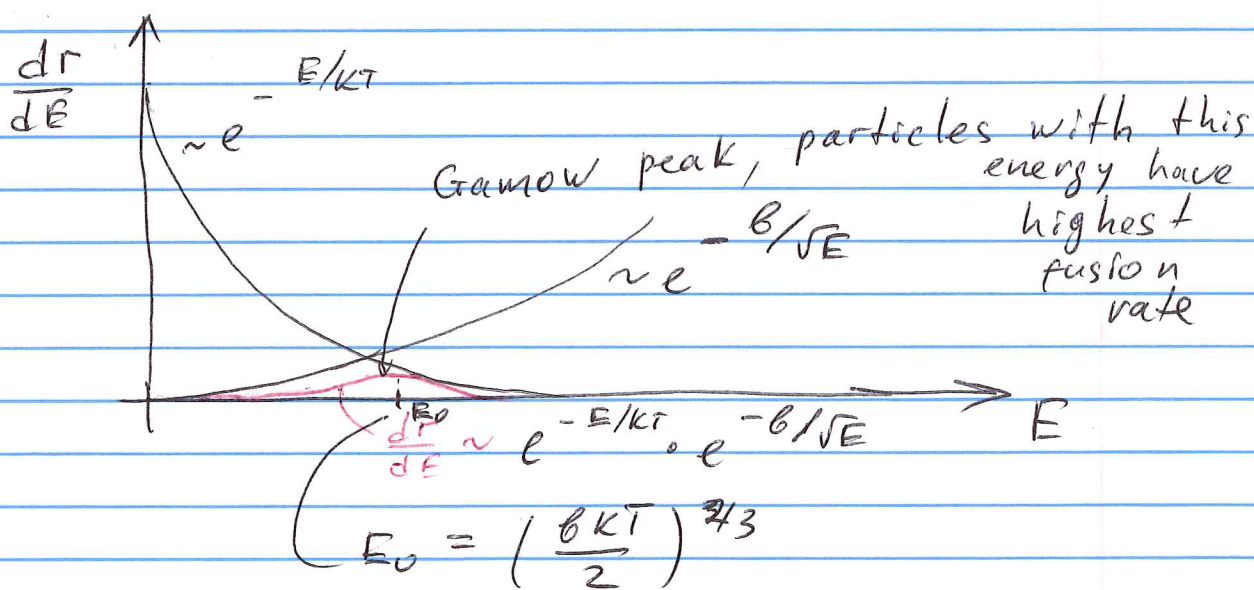 dr/dE
~e^-E/kT
Gamow peak, particles with this
energy have
highest
fusion
rate
~e^-b/√E
E₀
dr/dE ~ e^-E/kT · e^-b/√E
E
E₀ = (bkT/2)^2/3